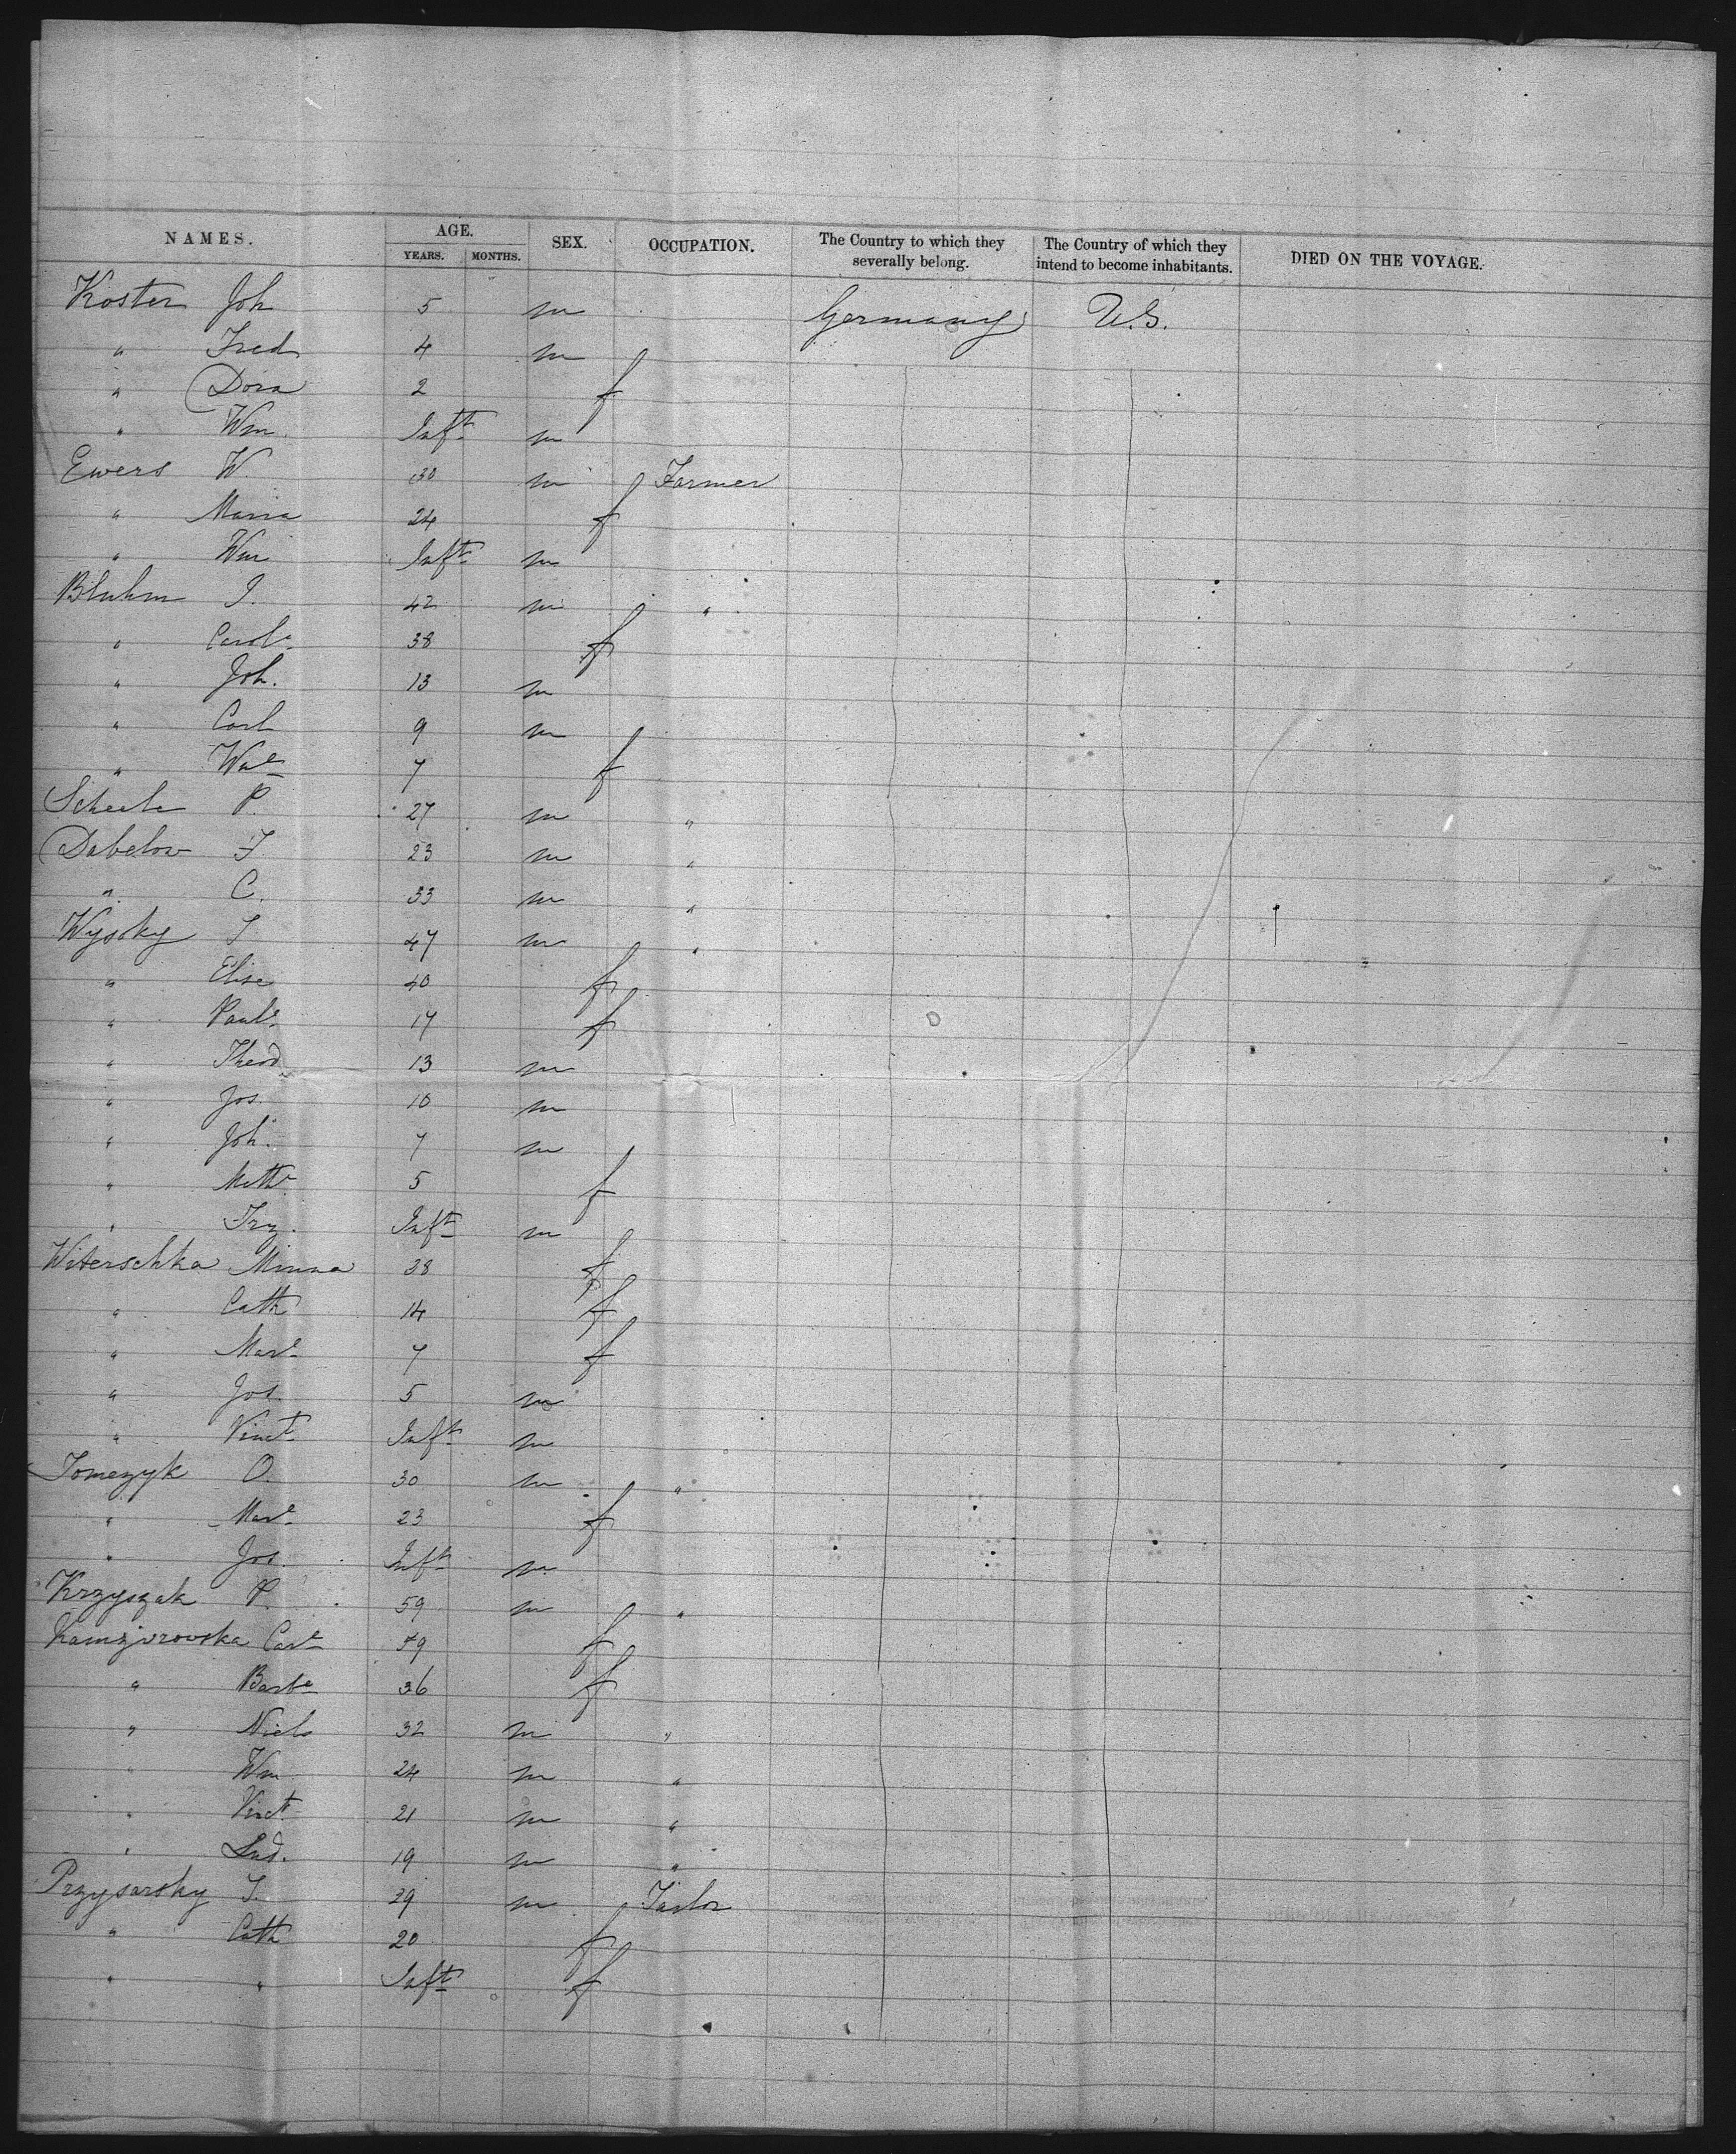 NAMES. AGE. SEX. OCCUPATION. The Country to which they severally belong. The Country of which they intend to become inhabitants. DIED ON THE VOYAGE.
YEARS. MONTHS.
Koster Joh 5 m Germany U.S.
" Fred 4 m
" Dora 2 f
" Wm. Inft m
Ewers W. 30 m Farmer
" Maria 24 f
" Wm Inft m
Bluhm J. 42 m "
" Carole 38 f
" Joh. 13 m
" Carl 9 m
" 7 f
Scheele P. 27 m "
Dabelow F. 23 m "
" C. 33 m "
Wysoky 47 m "
" Elise 40 f
" Paule 17 f
" Theod 13 m
" Jos. 10 m
" Joh. 7 m
" Math 5 f
" Frz. Inft m
Witerschka Minna 38 f
" Cath 14 f
" Mare 7 f
" Jos. 5 m
" Vinct Inft m
Tomezyk O. 30 m "
" Mare 23 f
" Jos. Inft m
Krzyszak P. 59 m "
Care 59 f
" Barbe 36 f
" Niels 32 m "
" Wm 24 m "
" Vinct 21 m "
" Lud. 19 m "
Przysarsky 29 m Tailor
" Cath 20 f
" " Inft f